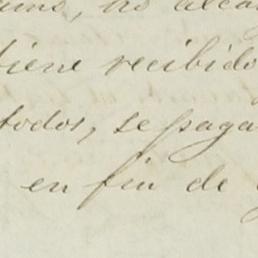 no alcan
tiene recibido
todos, se paga
en fin de